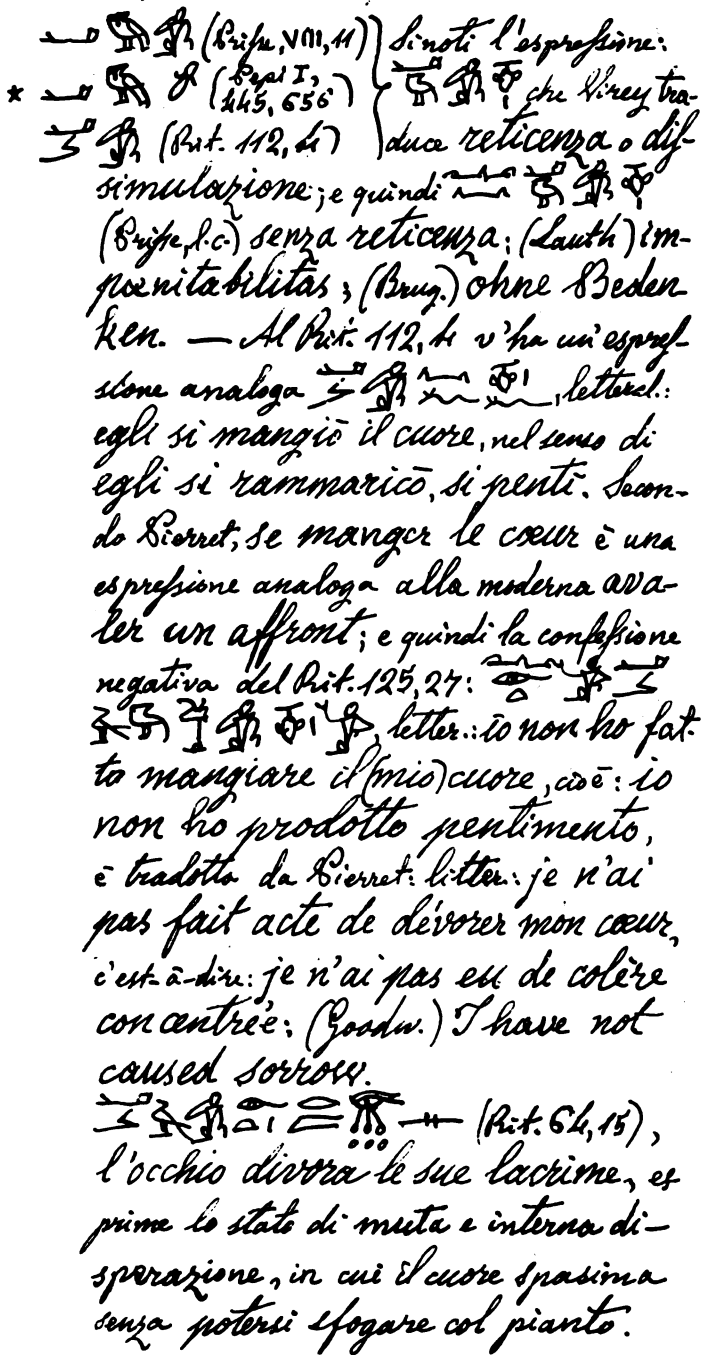 (Prisse, VIII, 11) Si noti l'espressione:
* (Pepi I, 445, 656) che Virey tra-
(Rit. 112, 4) duce reticenza o dis-
simulazione; e quindi
(Prisse, l.c.) senza reticenza; (Lauth) im-
pœnitabilitas; (Brug.) ohne Beden
ken. — Al Rit. 112, 4 v'ha un'espres-
sione analoga , letteral.:
egli si mangiò il cuore, nel senso di
egli si rammaricò, si pentì. Secon-
do Pierret, se manger le cœur è una
espressione analoga alla moderna ava-
ler un affront; e quindi la confessione
negativa del Rit. 125, 27:
, letter.: io non ho fat-
to mangiare il (mio) cuore, cioè: io
non ho prodotto pentimento,
è tradotto da Pierret: litter.: je n'ai
pas fait acte de dévorer mon cœur,
c'est-à-dire: je n'ai pas eu de colère
concentrée; (Goodw.) I have not
caused sorrow.
(Rit. 64, 15),
l'occhio divora le sue lacrime, es
prime lo stato di muta e interna di-
sperazione, in cui il cuore spasima
senza potersi sfogare col pianto.